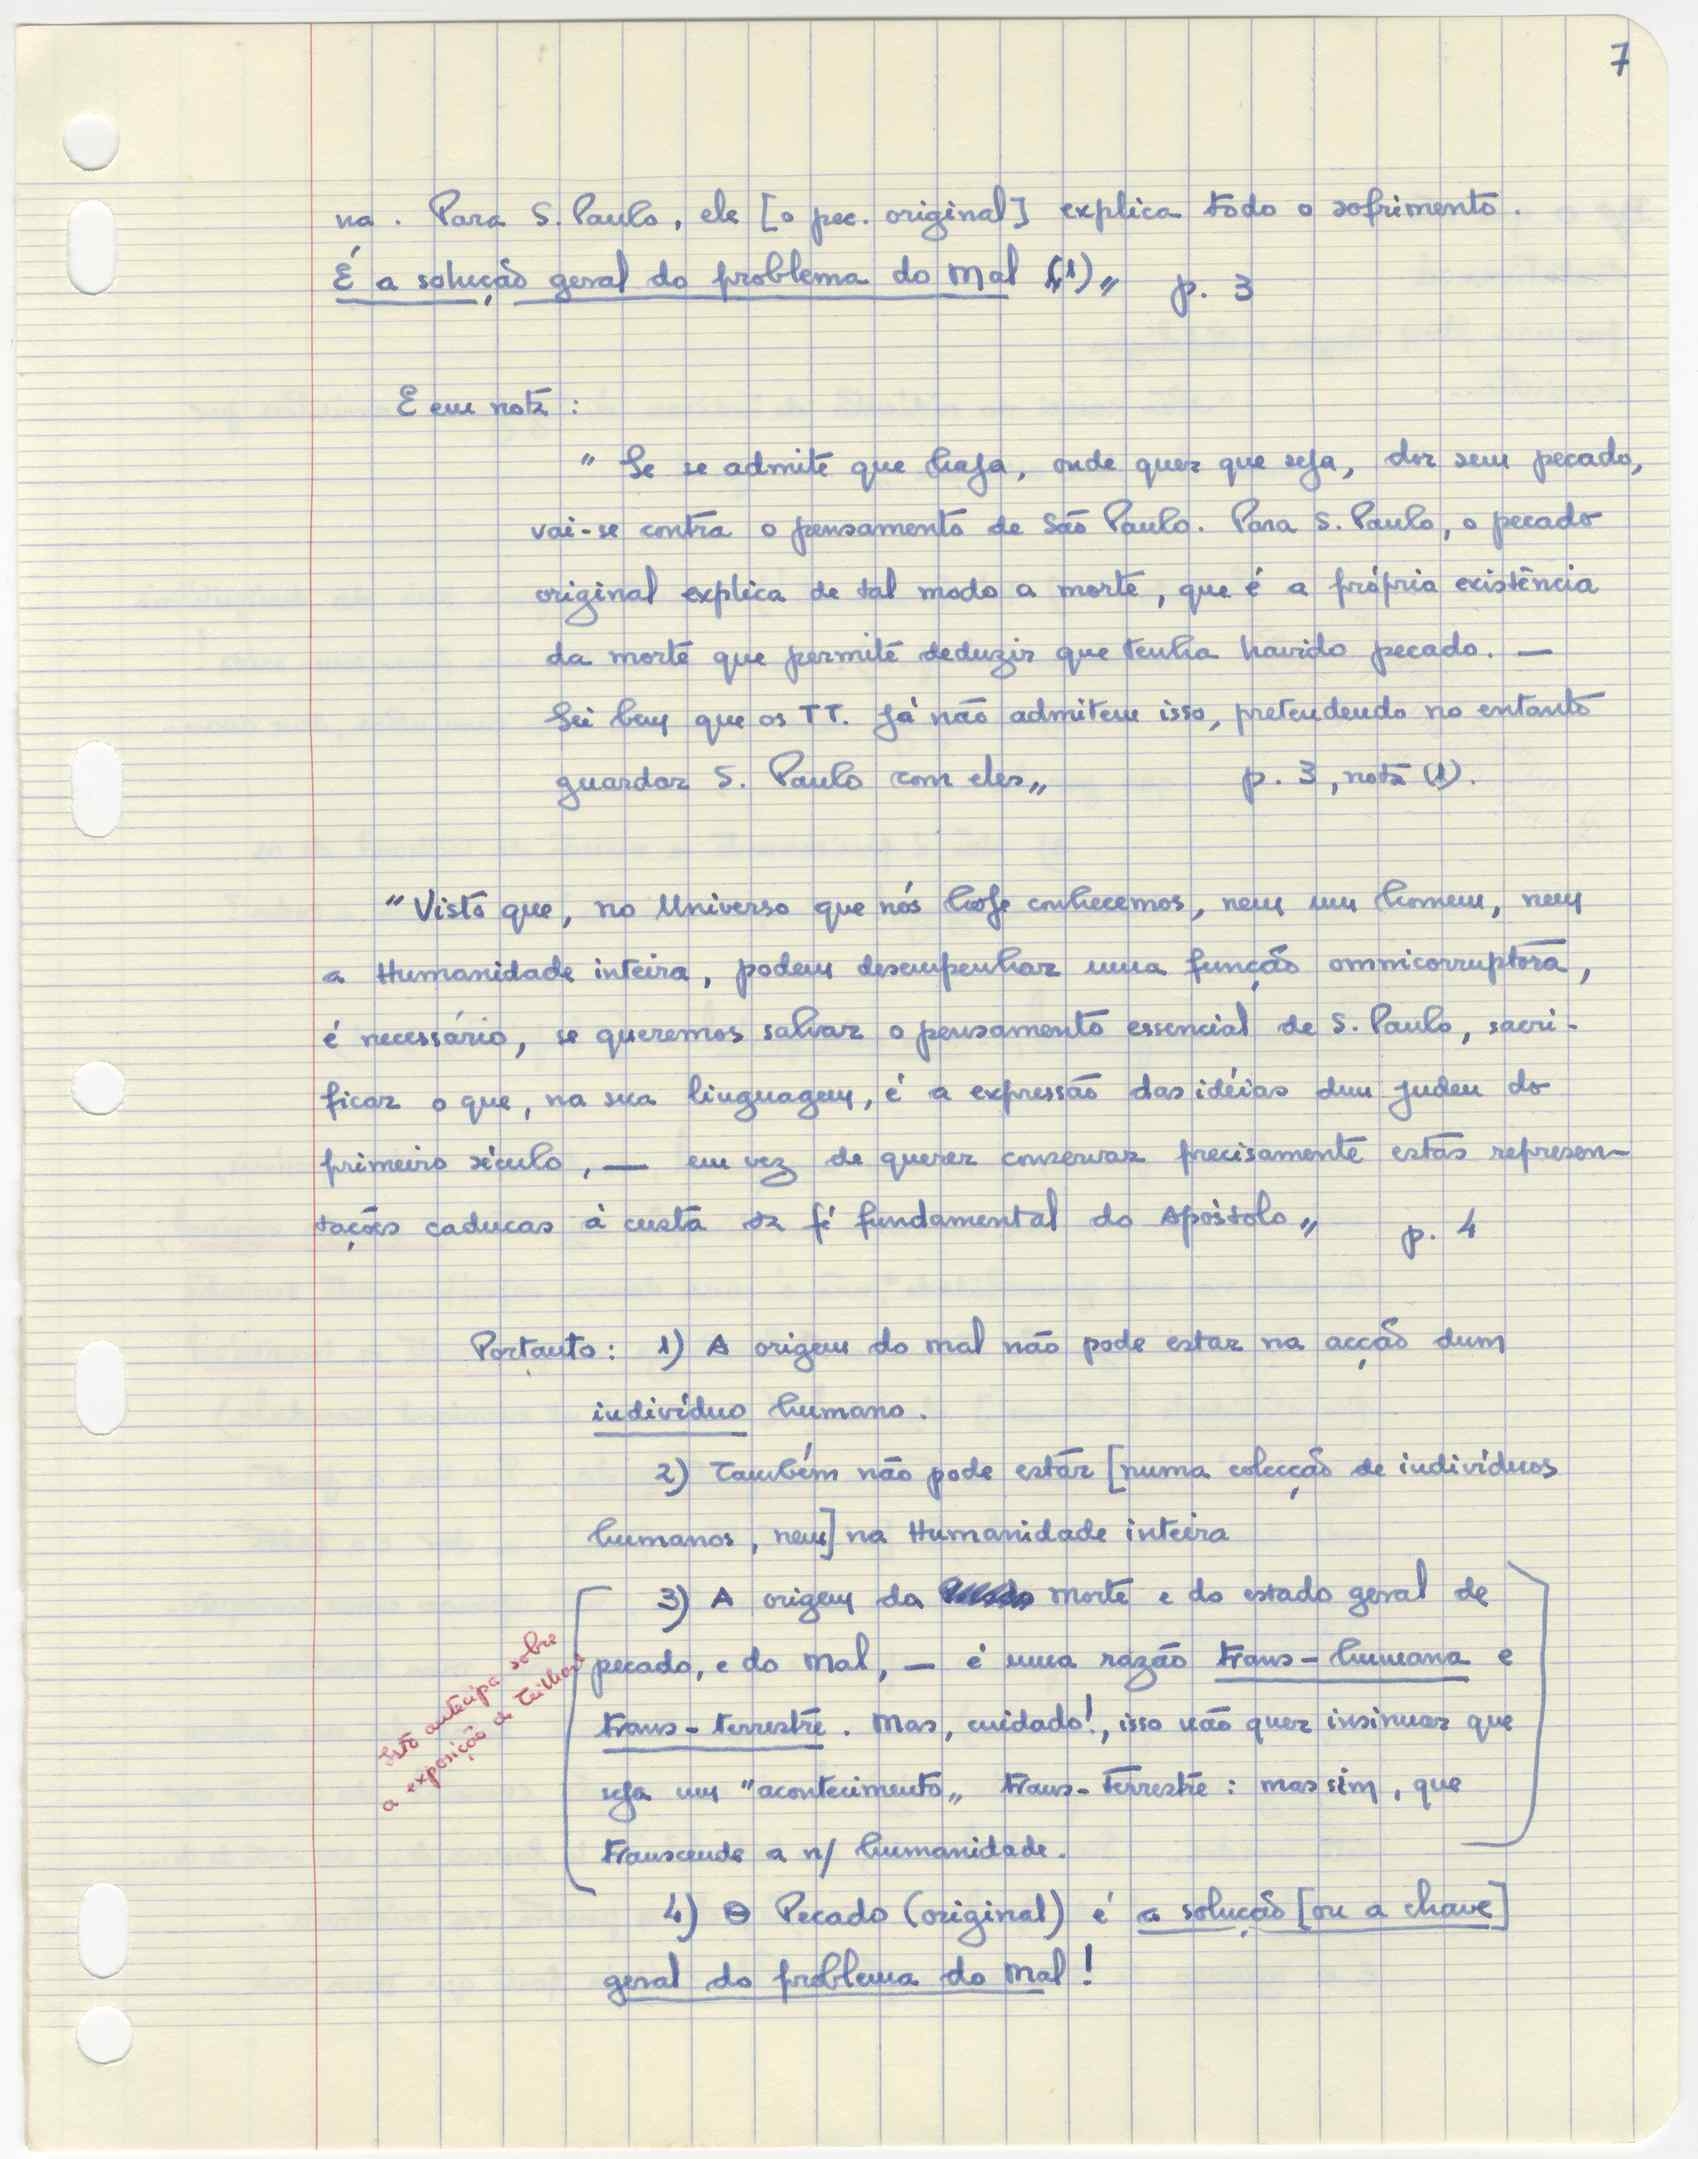 7
na. Para S. Paulo, ele [o pec. original] explica todo o sofrimento.
É a solução geral do problema do Mal (1)„ p. 3
E em nota:
"Se se admite que haja, onde quer que seja, dor sem pecado,
vai-se contra o pensamento de São Paulo. Para S. Paulo, o pecado
original explica de tal modo a morte, que é a própria existência
da morte que permite deduzir que tenha havido pecado. —
Sei bem que os TT. já não admitem isso, pretendendo no entanto
guardar S. Paulo com eles„ p. 3, nota (1).
"Visto que, no Universo que nós hoje conhecemos, nem um homem, nem
a Humanidade inteira, podem desempenhar uma função omnicorruptora,
é necessário, se queremos salvar o pensamento essencial de S. Paulo, sacri-
ficar o que, na sua linguagem, é a expressão das idéias dum judeu do
primeiro século, — em vez de querer conservar precisamente estas represen-
tações caducas à custa da fé fundamental do Apóstolo„ p. 4
Portanto: 1) A origem do mal não pode estar na acção dum
indivíduo humano.
2) Também não pode estar [numa colecção de indivíduos
humanos, nem] na Humanidade inteira
3) A origem da morte e do estado geral de
pecado, e do Mal, — é uma razão trans-humana e
trans-terrestre. Mas, cuidado!, isso não quer insinuar que
seja um "acontecimento„ trans-terrestre: mas sim, que
transcende a n/ humanidade.
Isto antecipa sobre
a exposição de Teilhard
4) O Pecado (original) é a solução [ou a chave]
geral do problema do Mal!